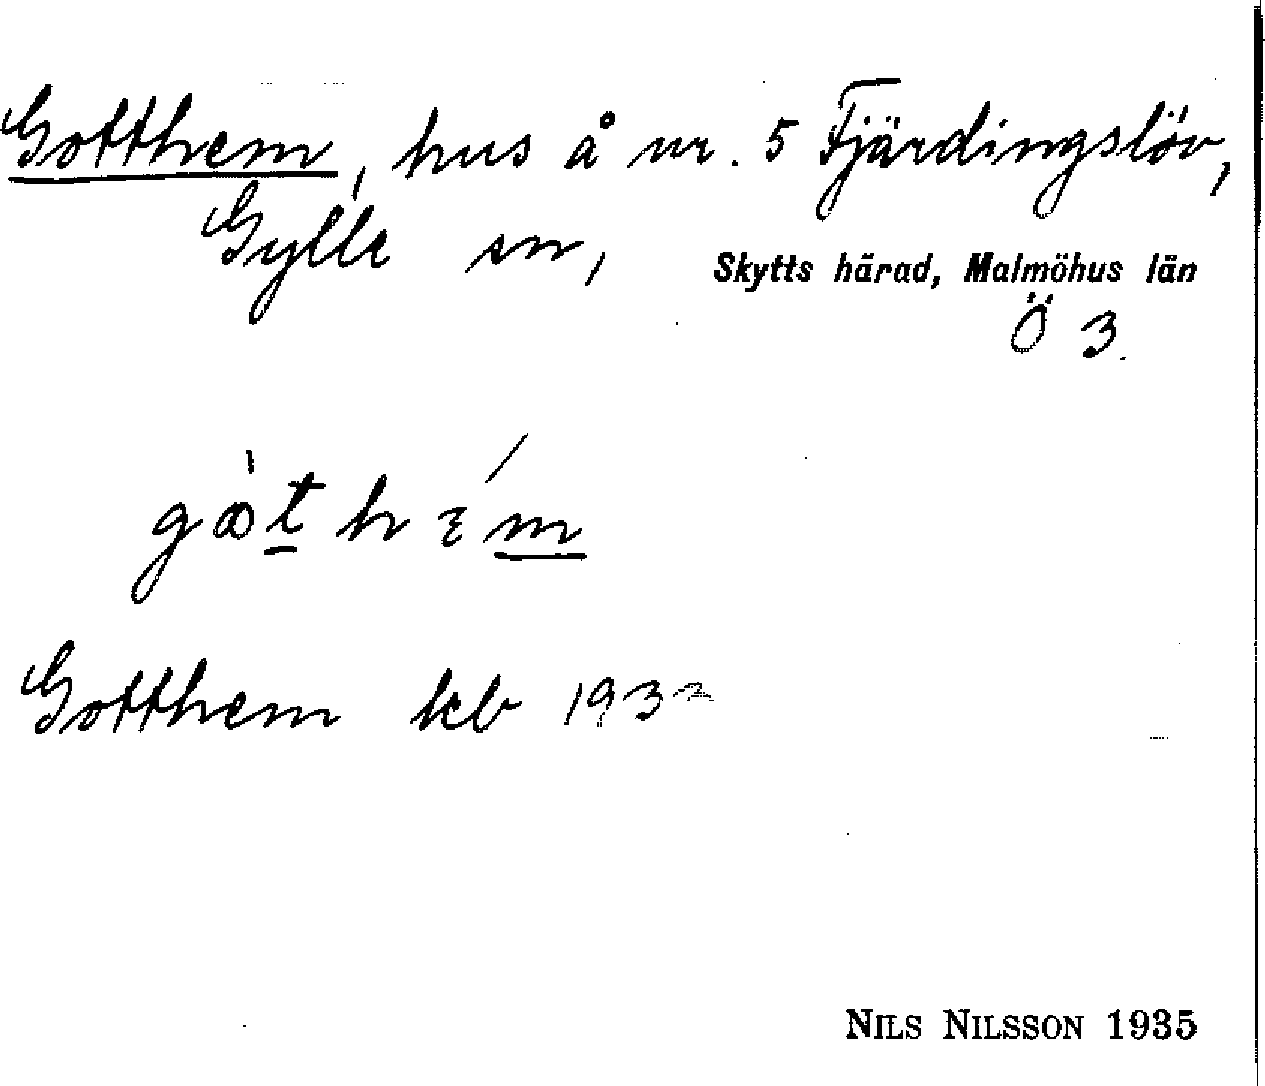 Gotthem, hus å nr. 5 Fjärdingslöv,
Gylle sn, Skytts härad, Malmöhus län
Ö 3.
Gotthem kb 193
NILS NILSSON 1935